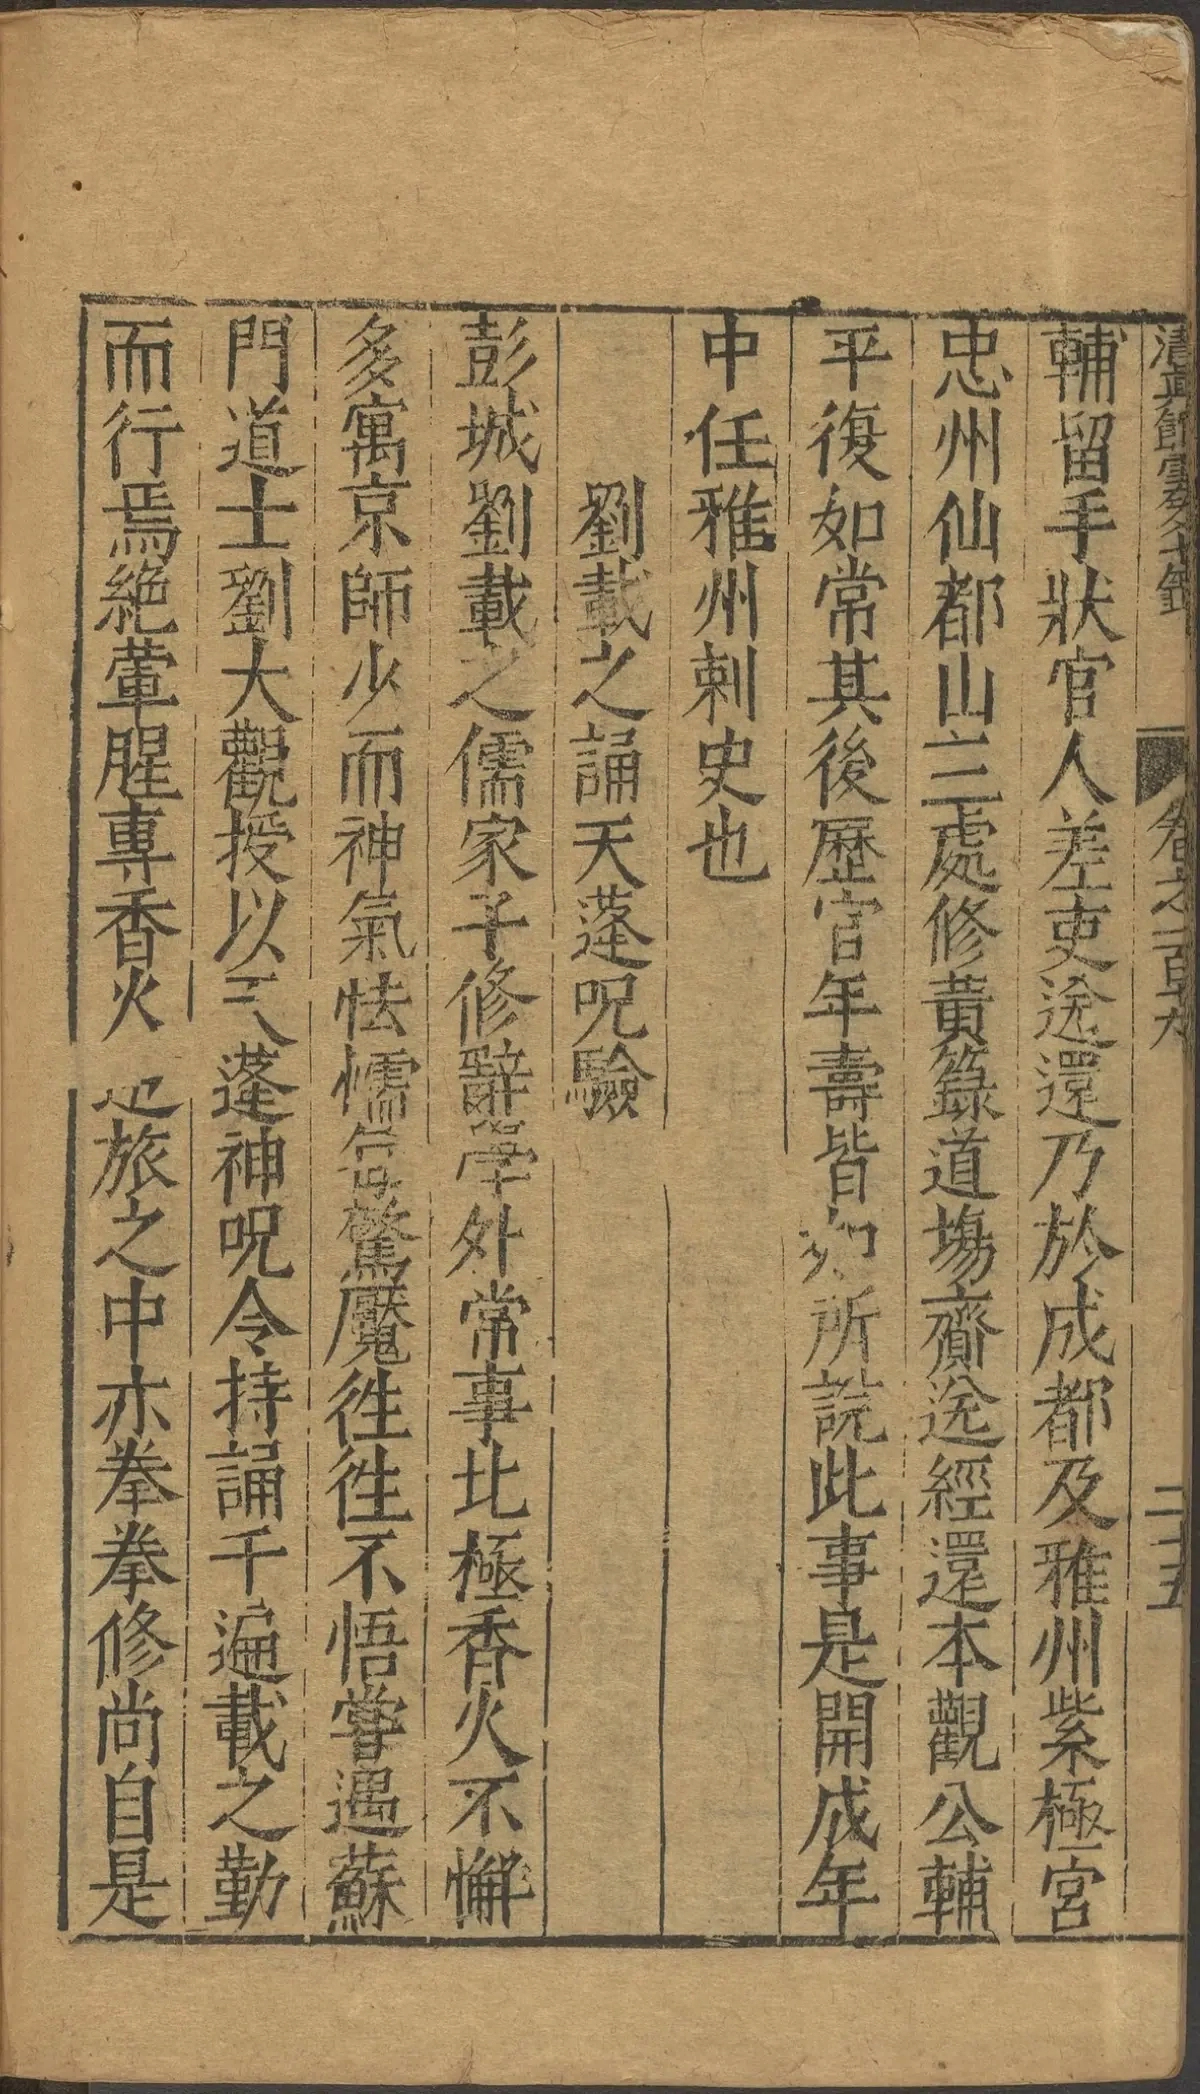 清真館雲笈七籤 卷之一百九 二十五
輔留手狀官人差吏送還乃於成都及雅州紫極宮
忠州仙都山三處修黃籙道場齎送經還本觀公輔
平復如常其後歷官年壽皆如所說此事是開成年
中任雅州刺史也
劉載之誦天蓬呪驗
彭城劉載之儒家子修辭學外常事北極香火不懈
多寓京師少而神氣怯懦每驚魘徃徃不悟嘗遇蘇
門道士劉大觀授以天蓬神呪令持誦千遍載之勤
而行焉絶葷腥專香火逆旅之中亦拳拳修尚自是